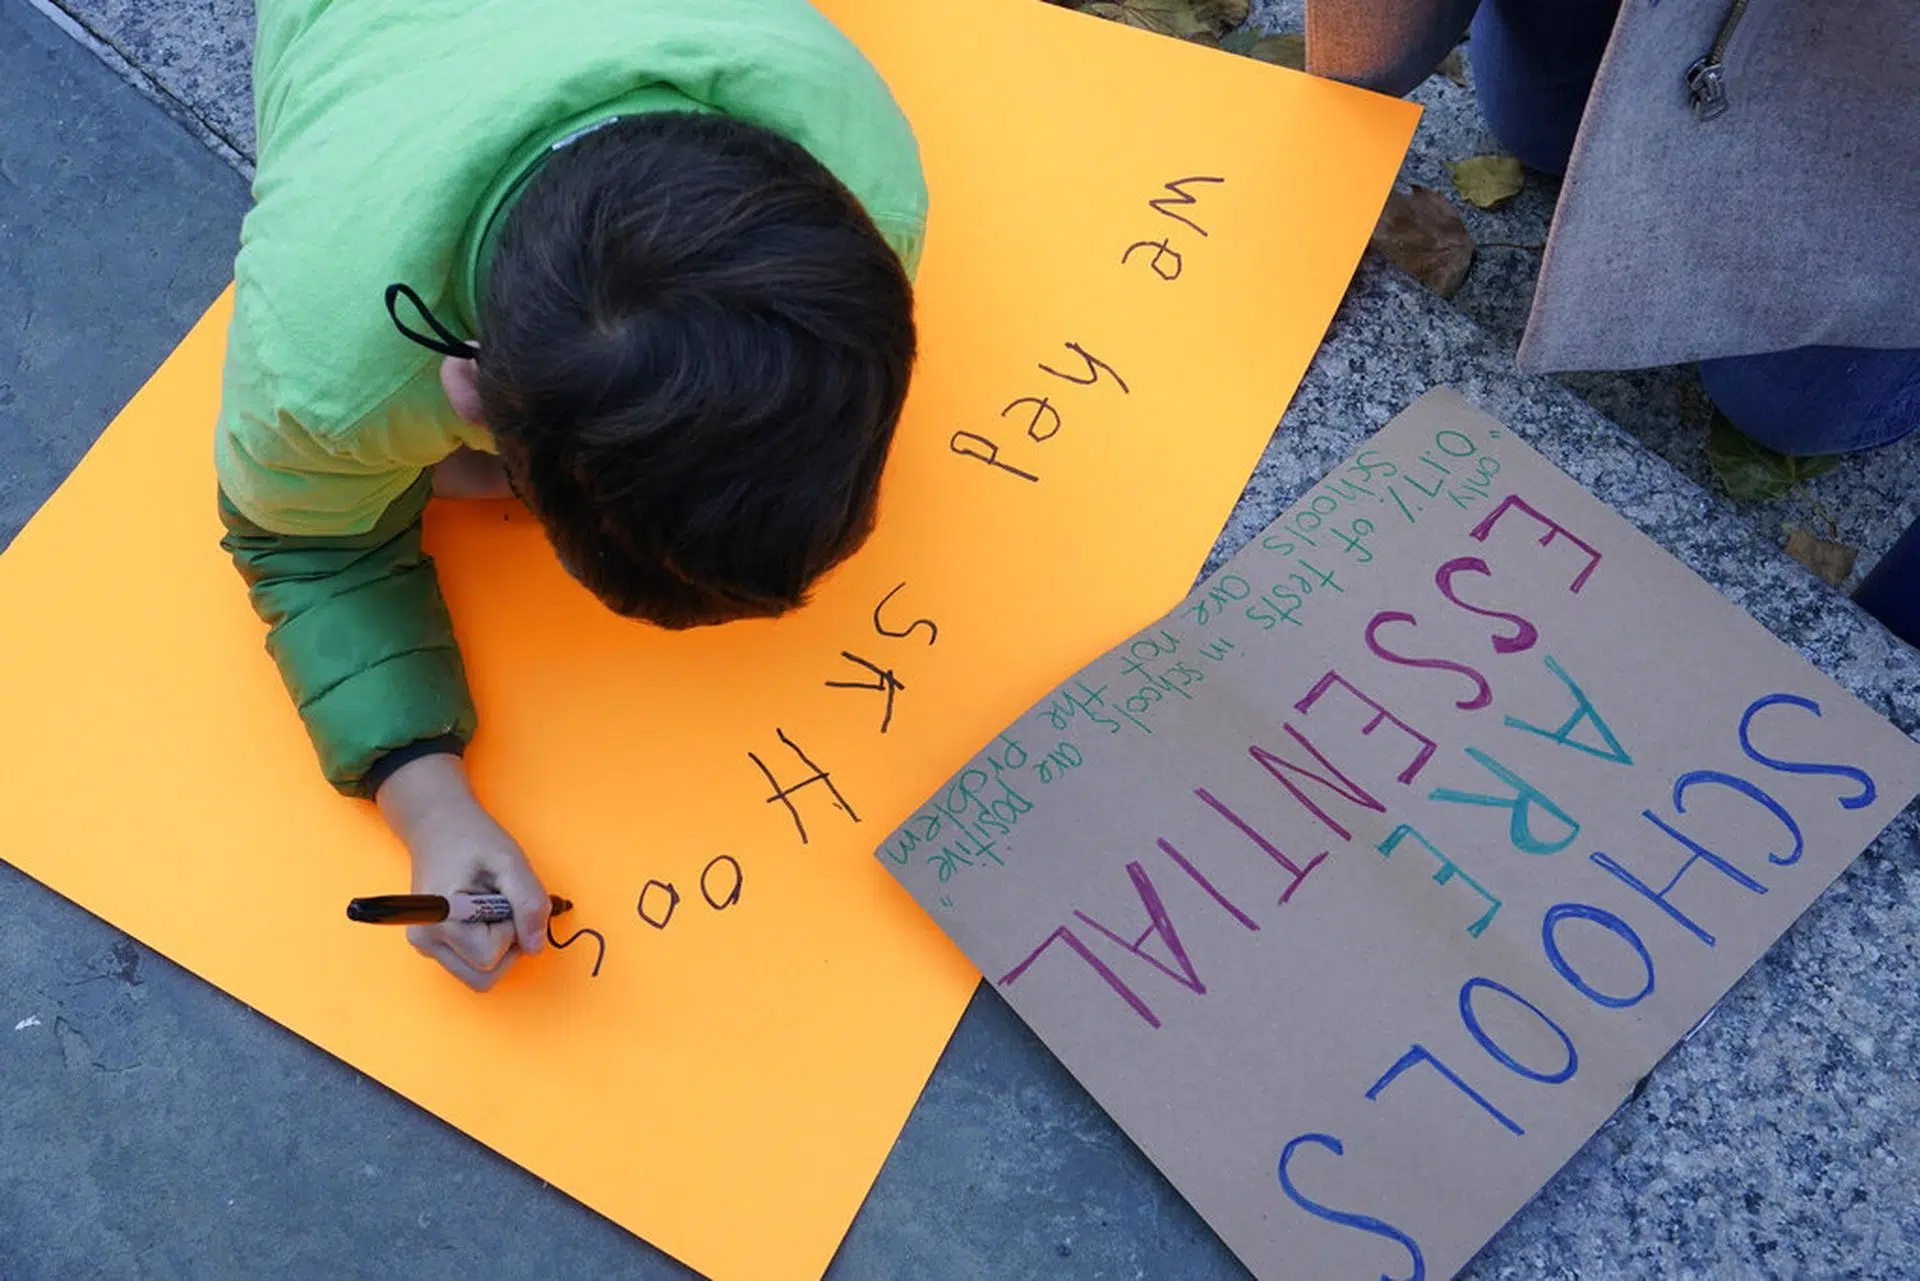 We ned SKHOOS
SCHOOLS
ARE
ESSENTIAL
"only
0.17% of tests in schools are positive"
Schools are not the problem